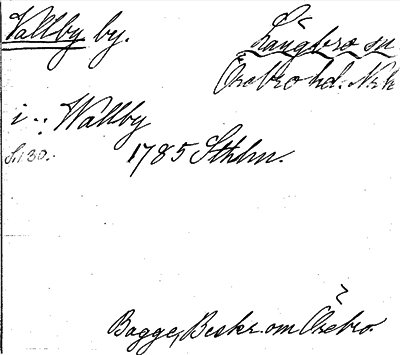 Vallby by.
Långbro sn
Örebro hd. Nrk
i.: Wallby
S. 130.
1785 Sthlm.
Bagge, Beskr. om Örebro.